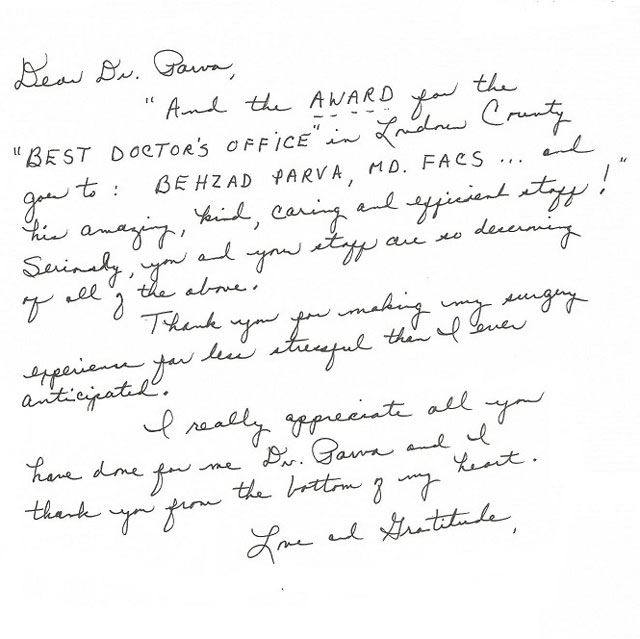 Dear Dr. Parva,
"And the AWARD for the
"BEST DOCTOR'S OFFICE" in Loudoun County
goes to: BEHZAD PARVA, MD. FACS ... and
his amazing, kind, caring and efficient staff!"
Seriously, you and your staff are so deserving
of all of the above.
Thank you for making my surgery
experience far less stressful than I ever
anticipated.
I really appreciate all you
have done for me Dr. Parva and I
thank you from the bottom of my heart.
Love and Gratitude,